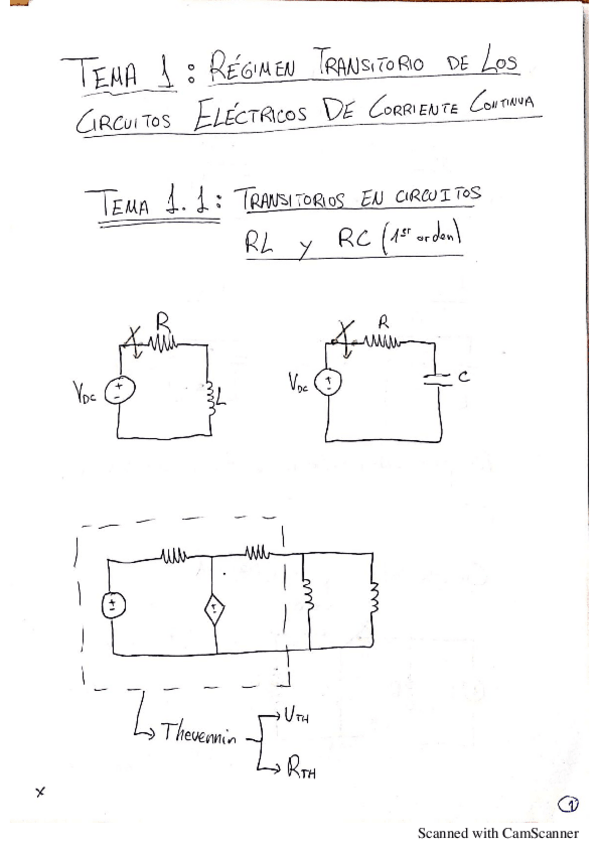 TEMA 1: RÉGIMEN TRANSITORIO DE LOS
CIRCUITOS ELÉCTRICOS DE CORRIENTE CONTINUA
TEMA 1.1: TRANSITORIOS EN CIRCUITOS
RL y RC (1er orden)
R
VDC
L
R
VDC
C
Thevennin
UTH
RTH
x
1
Scanned with CamScanner